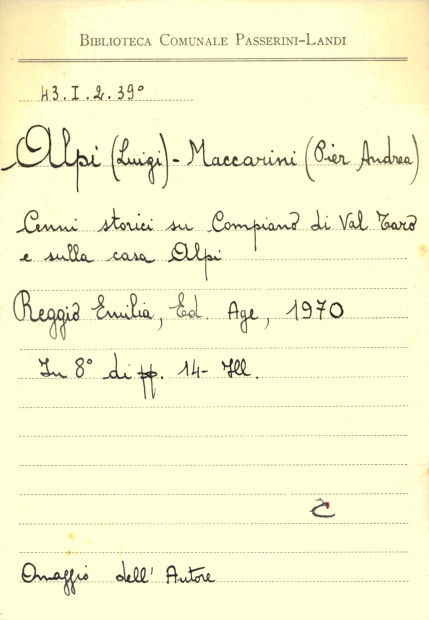 BIBLIOTECA COMUNALE PASSERINI-LANDI
43.I.2.39°
Alpi (Luigi) - Maccarini (Pier Andrea)
Cenni storici su Compiano di Val Taro
e sulla casa Alpi
Reggio Emilia, Ed. Age, 1970
In 8° di pp. 14 - Ill.
Omaggio dell' Autore